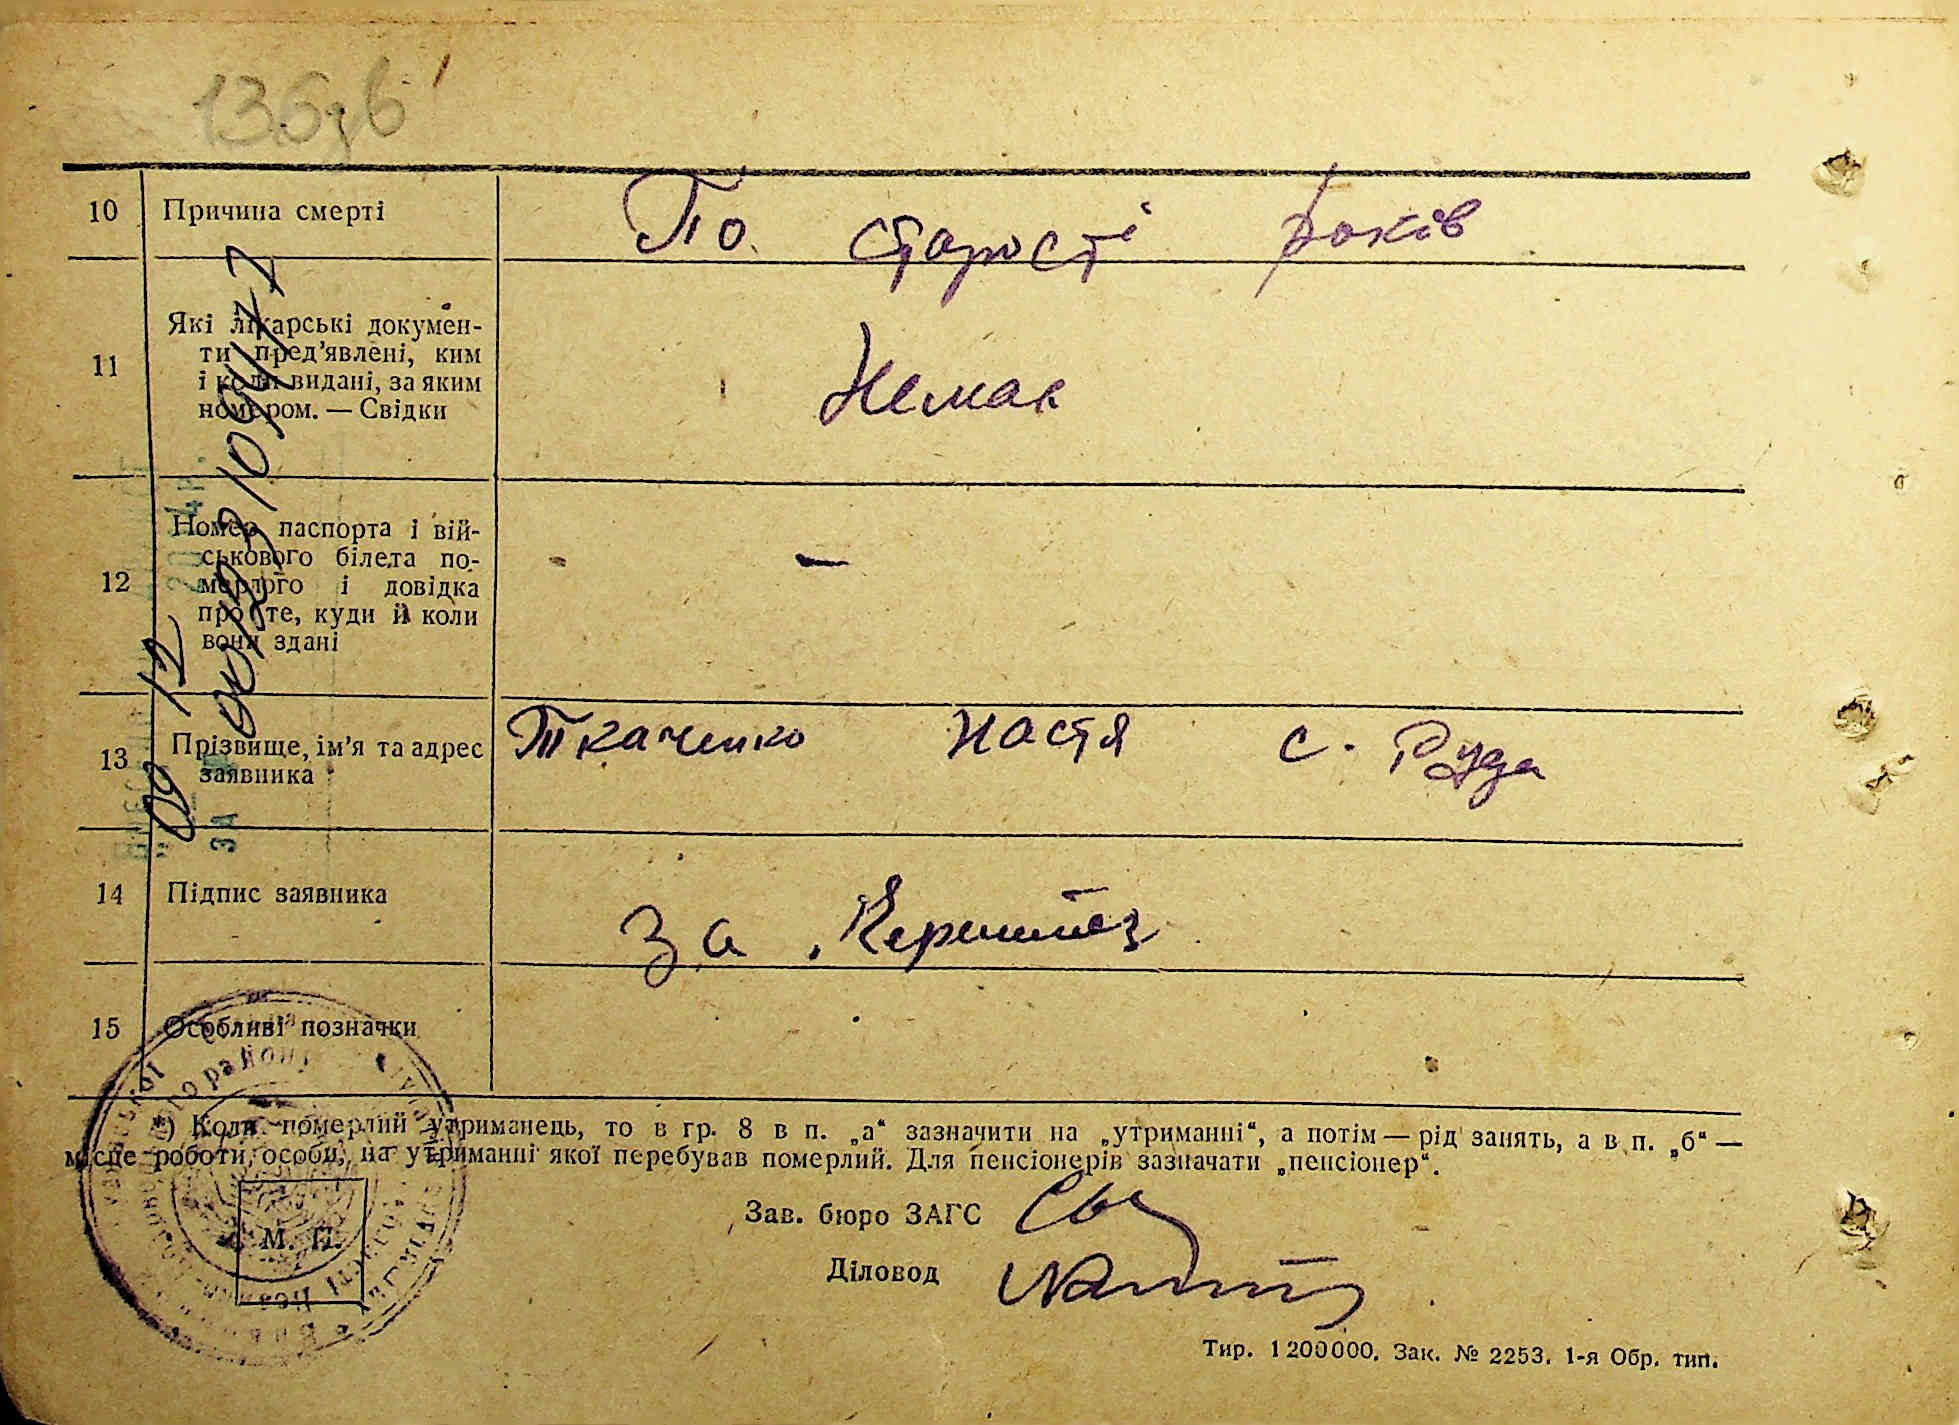 136
10 Причина смерті По старості років
11 Які лікарські докумен-
ти пред'явлені, ким
і коли видані, за яким
номером. — Свідки
Немає
12 Номер паспорта і вій-
ськового білета по-
мерлого і довідка
про те, куди й коли
вони здані
—
13 Прізвище, ім'я та адрес
заявника
Ткаченко Настя с. Руда
14 Підпис заявника
За
15 Особливі позначки
*) Коли померлий утриманець, то в гр. 8 в п. „а“ зазначити на „утриманні“, а потім — рід занять, а в п. „б“ —
місце роботи особи, на утриманні якої перебував померлий. Для пенсіонерів зазначати „пенсіонер“.
Зав. бюро ЗАГС
М. П.
Діловод
Тир. 1 200 000. Зак. № 2253. 1-я Обр. тип.
09 12
ЗА
району